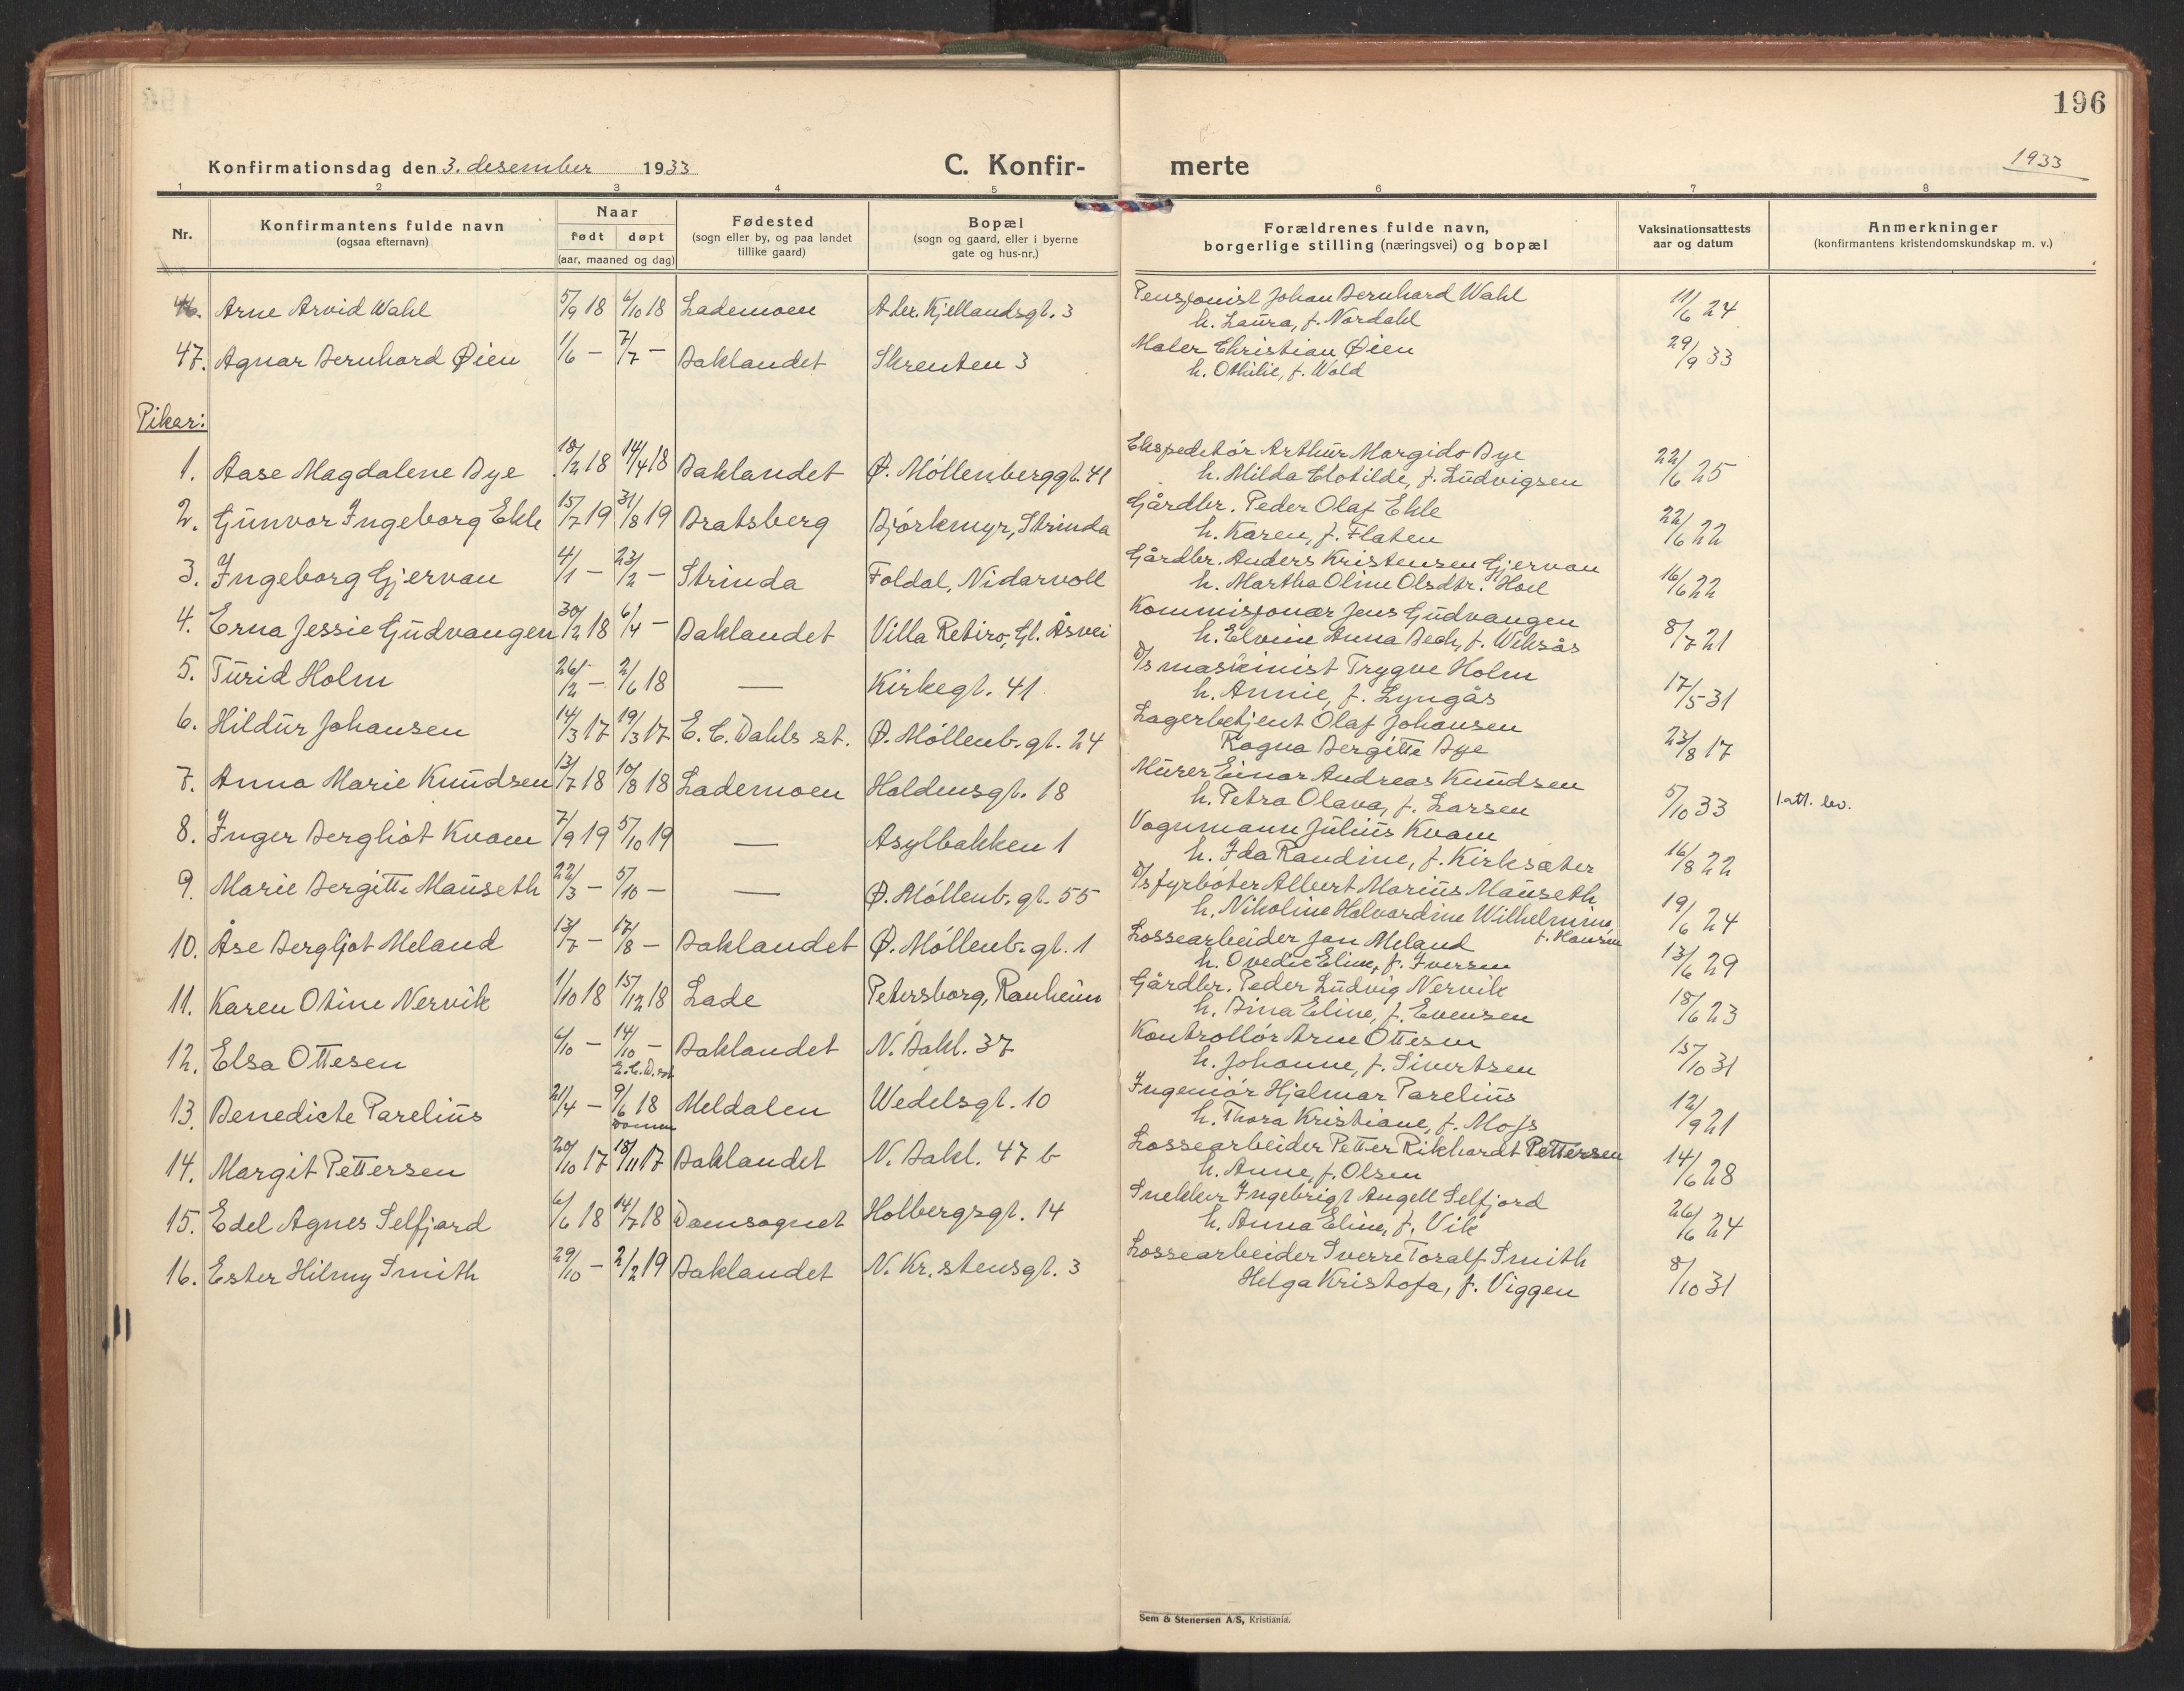 196
Konfirmationsdag den 3. desember 1933 C. Konfirmerte 1933
1 2 3 4 5 6 7 8
Nr. Konfirmantens fulde navn (ogsaa efternavn) Naar født døpt (aar, maaned og dag) Fødested (sogn eller by, og paa landet tillike gaard) Bopæl (sogn og gaard, eller i byerne gate og hus-nr.) Forældrenes fulde navn, borgerlige stilling (næringsvei) og bopæl Vaksinationsattests aar og datum Anmerkninger (konfirmantens kristendomskundskap m. v.)
46. Arne Arvid Wahl 5/9 18 6/10 18 Lademoen Alex. Kjellandsgt. 3 Pensjonist Johan Bernhard Wahl 11/6 24
h. Laura, f. Nordahl
47. Agnar Bernhard Øien 1/6 – 7/7 – Baklandet Skrenten 3 Maler Christian Øien 29/9 33
h. Othilie, f. Wold
Piker:
1. Aase Magdalene Bye 18/2 18 14/4 18 Baklandet Ø. Möllenberggt. 41 Ekspeditør Arthur Margido Bye 22/6 25
h. Milda Clotilde, f. Ludvigsen
2. Gunvor Ingeborg Ekle 15/7 19 31/8 19 Bratsberg Bjørkmyr, Strinda Gårdbr. Peder Olaf Ekle 22/6 22
h. Karen, f. Flaten
3. Ingeborg Gjervan 4/1 – 23/2 – Strinda Foldal, Nidarvoll Gårdbr. Anders Kristensen Gjervan 16/6 22
h. Martha Oline Olsdtr. Hoel
4. Erna Jessie Gudvangen 30/2 18 6/4 – Baklandet Villa Retiro, Gl. Åsvei Kommisjonær Jens Gudvangen 8/7 21
h. Elvine Anna Bech, f. Wiksås
5. Turid Holm 26/2 – 2/6 18 — Kirkegt. 41 D/s maskinist Trygve Holm 17/5 31
h. Annie, f. Lyngås
6. Hildur Johansen 14/3 17 19/3 17 E. C. Dahls st. Ø. Möllenb. gt. 24 Lagerbetjent Olaf Johansen 23/8 17
Ragna Bergitte Bye
7. Anna Marie Knudsen 13/7 18 10/8 18 Lademoen Haldensgt. 18 Murer Einar Andreas Knudsen 5/10 33 1. att. lev.
h. Petra Olava, f. Larsen
8. Inger Bergliot Kvam 7/9 19 5/10 19 — Asylbakken 1 Vognmann Julius Kvam 16/8 22
h. Ida Randine, f. Kirksæter
9. Marie Bergitte Mauseth 22/3 – 5/10 – — Ø. Möllenb. gt. 55 D/s fyrbøter Albert Marius Mauseth 19/6 24
h. Nikoline Halvardine Wilhelmine, f. Hansen
10. Åse Bergljot Meland 13/7 – 17/8 – Baklandet Ø. Möllenb. gt. 1 Lossearbeider Jan Meland 13/6 29
h. Ovedie Eline, f. Iversen
11. Karen Otine Nervik 1/10 18 15/12 18 Lade Petersborg, Ranheim Gårdbr. Peder Ludvig Nervik 18/6 23
h. Dina Eline, f. Evensen
12. Elsa Ottesen 6/10 – 14/10 – E.C.D.st Baklandet N. Bakl. 37 Kontrollør Arne Ottesen 15/10 31
h. Johanne, f. Sivertsen
13. Benedicte Parelius 21/4 – 9/6 18 Meldalen Wedelsgt. 10 Ingeniør Hjalmar Parelius 12/9 21
h. Thora Kristiane, f. Mohs
14. Margit Pettersen 20/10 17 18/11 17 Baklandet N. Bakl. 47 b Lossearbeider Petter Rikhardt Pettersen 14/6 28
h. Anne, f. Olsen
15. Edel Agnes Selfjord 6/6 18 14/7 18 Domsognet Holbergsgt. 14 Snekker Ingebrigt Angell Selfjord 26/6 24
h. Anna Eline, f. Vik
16. Ester Hilmy Smith 29/10 – 2/2 19 Baklandet N. Kr.stensgt. 3 Lossearbeider Sverre Toralf Smith 8/10 31
Helga Kristofa, f. Viggen
Sem & Stenersen A/S, Kristiania.